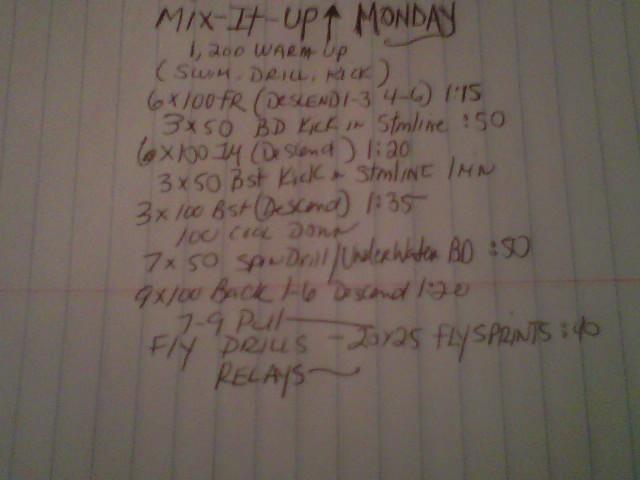 MIX-IT-UP↑ MONDAY
1,200 WARM UP
(SWIM, DRILL, KICK)
6x100 FR (DESCEND 1-3 4-6) 1:15
3x50 BD KICK IN STMLINE :50
6x100 IM (Descend) 1:20
3x50 BST KICK IN STMLINE 1MN
3x100 BST (DESCEND) 1:35
100 COOL DOWN
7x50 SPIN DRILL/UNDERWATER BD :50
9x100 BACK 1-6 Descend 1:20
7-9 Pull
FLY DRILLS - 20x25 FLY SPRINTS :40
RELAYS